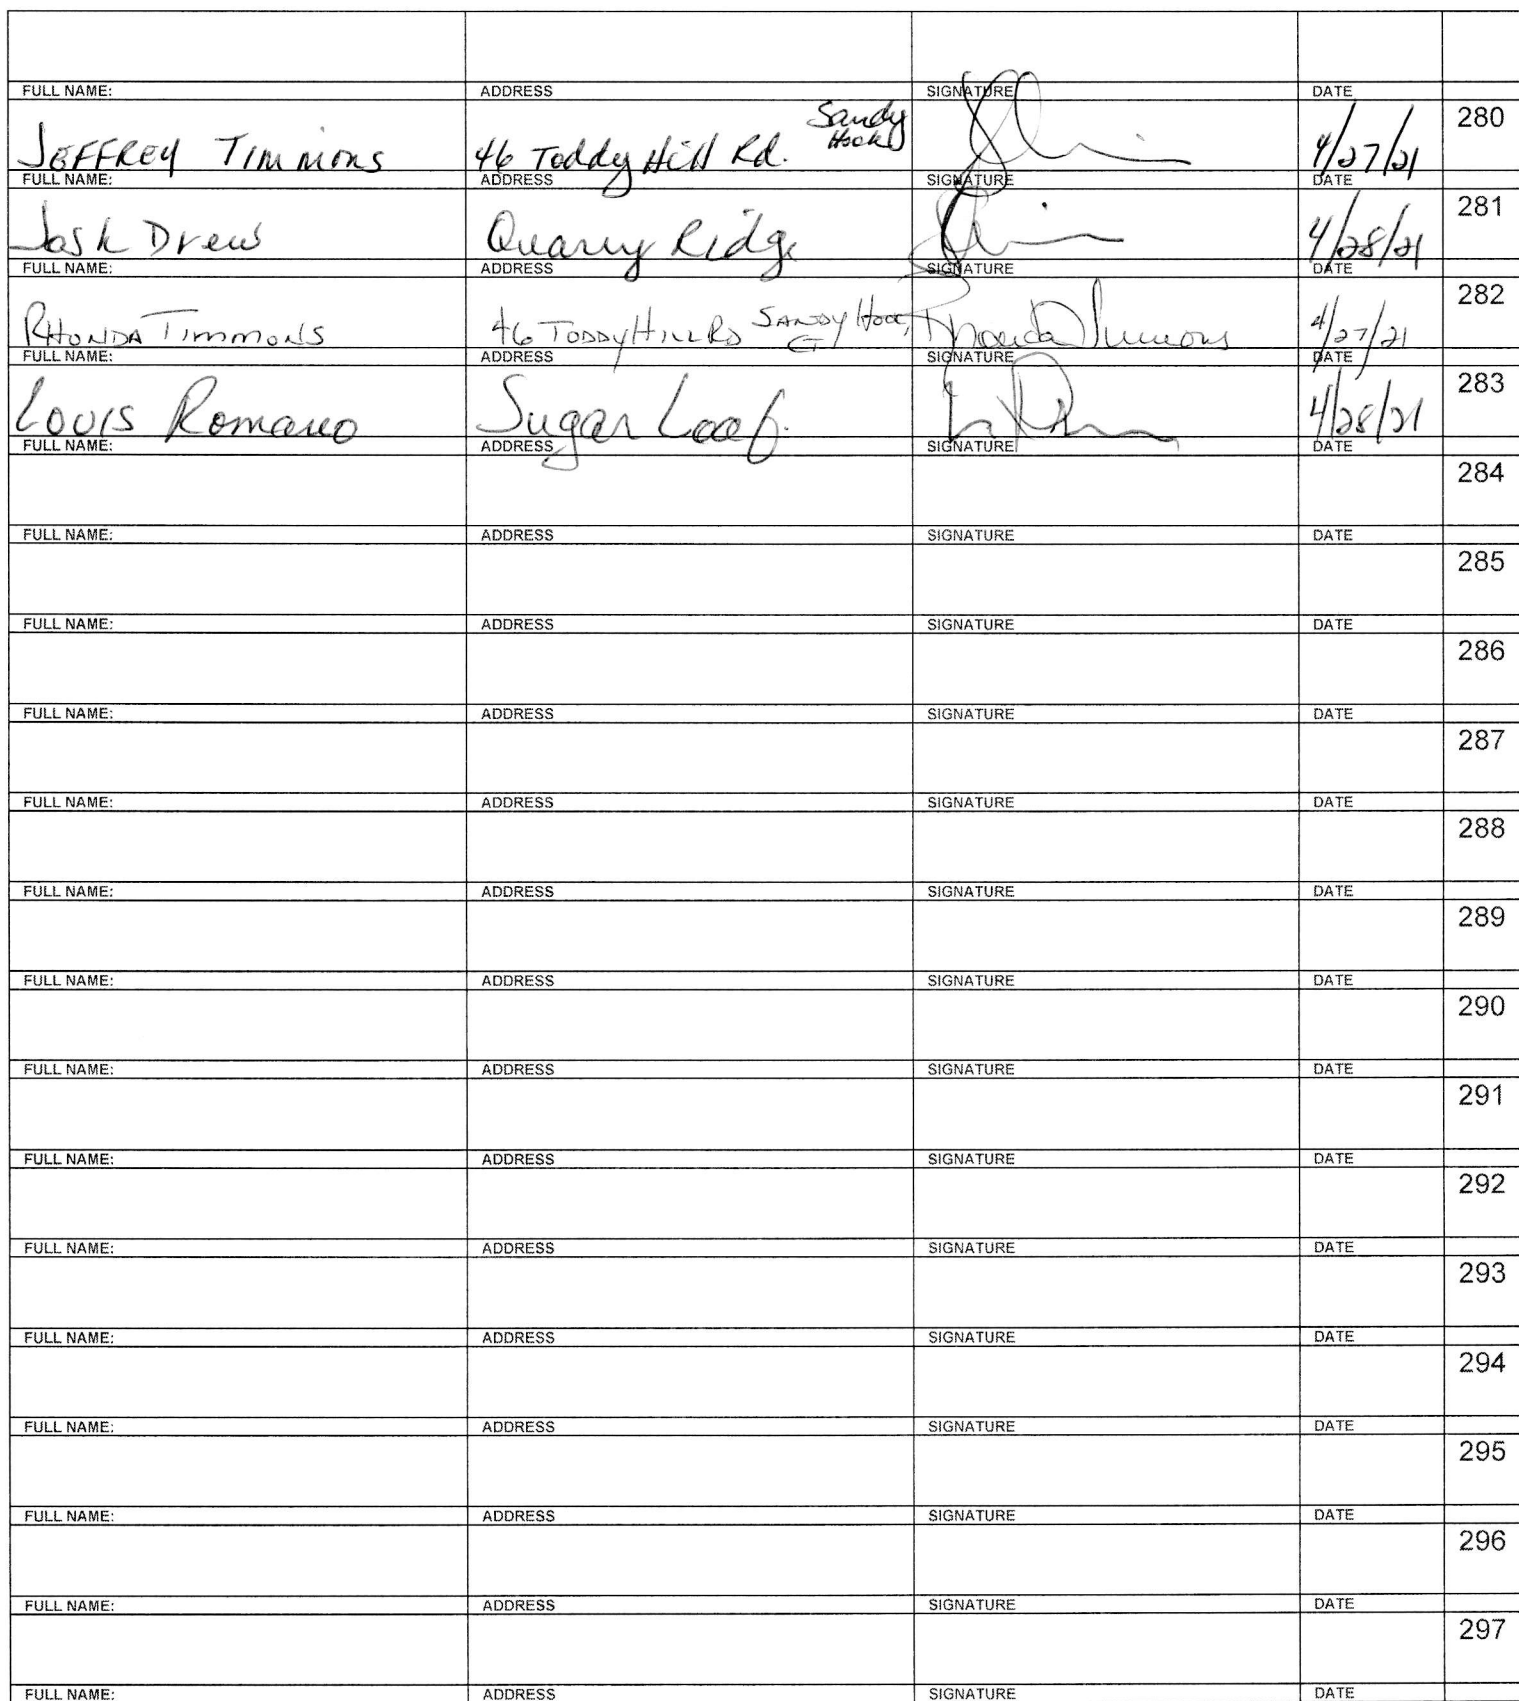 FULL NAME: ADDRESS SIGNATURE DATE
JEFFREY TIMMONS 46 Toddy Hill Rd. Sandy Hook 4/27/21 280
FULL NAME: ADDRESS SIGNATURE DATE
Josh Drew Quarry Ridge 4/28/21 281
FULL NAME: ADDRESS SIGNATURE DATE
RHONDA TIMMONS 46 TODDY HILL RD SANDY HOOK, CT Rhonda Timmons 4/27/21 282
FULL NAME: ADDRESS SIGNATURE DATE
Louis Romano Sugar Loaf. 4/28/21 283
FULL NAME: ADDRESS SIGNATURE DATE
284
FULL NAME: ADDRESS SIGNATURE DATE
285
FULL NAME: ADDRESS SIGNATURE DATE
286
FULL NAME: ADDRESS SIGNATURE DATE
287
FULL NAME: ADDRESS SIGNATURE DATE
288
FULL NAME: ADDRESS SIGNATURE DATE
289
FULL NAME: ADDRESS SIGNATURE DATE
290
FULL NAME: ADDRESS SIGNATURE DATE
291
FULL NAME: ADDRESS SIGNATURE DATE
292
FULL NAME: ADDRESS SIGNATURE DATE
293
FULL NAME: ADDRESS SIGNATURE DATE
294
FULL NAME: ADDRESS SIGNATURE DATE
295
FULL NAME: ADDRESS SIGNATURE DATE
296
FULL NAME: ADDRESS SIGNATURE DATE
297
FULL NAME: ADDRESS SIGNATURE DATE